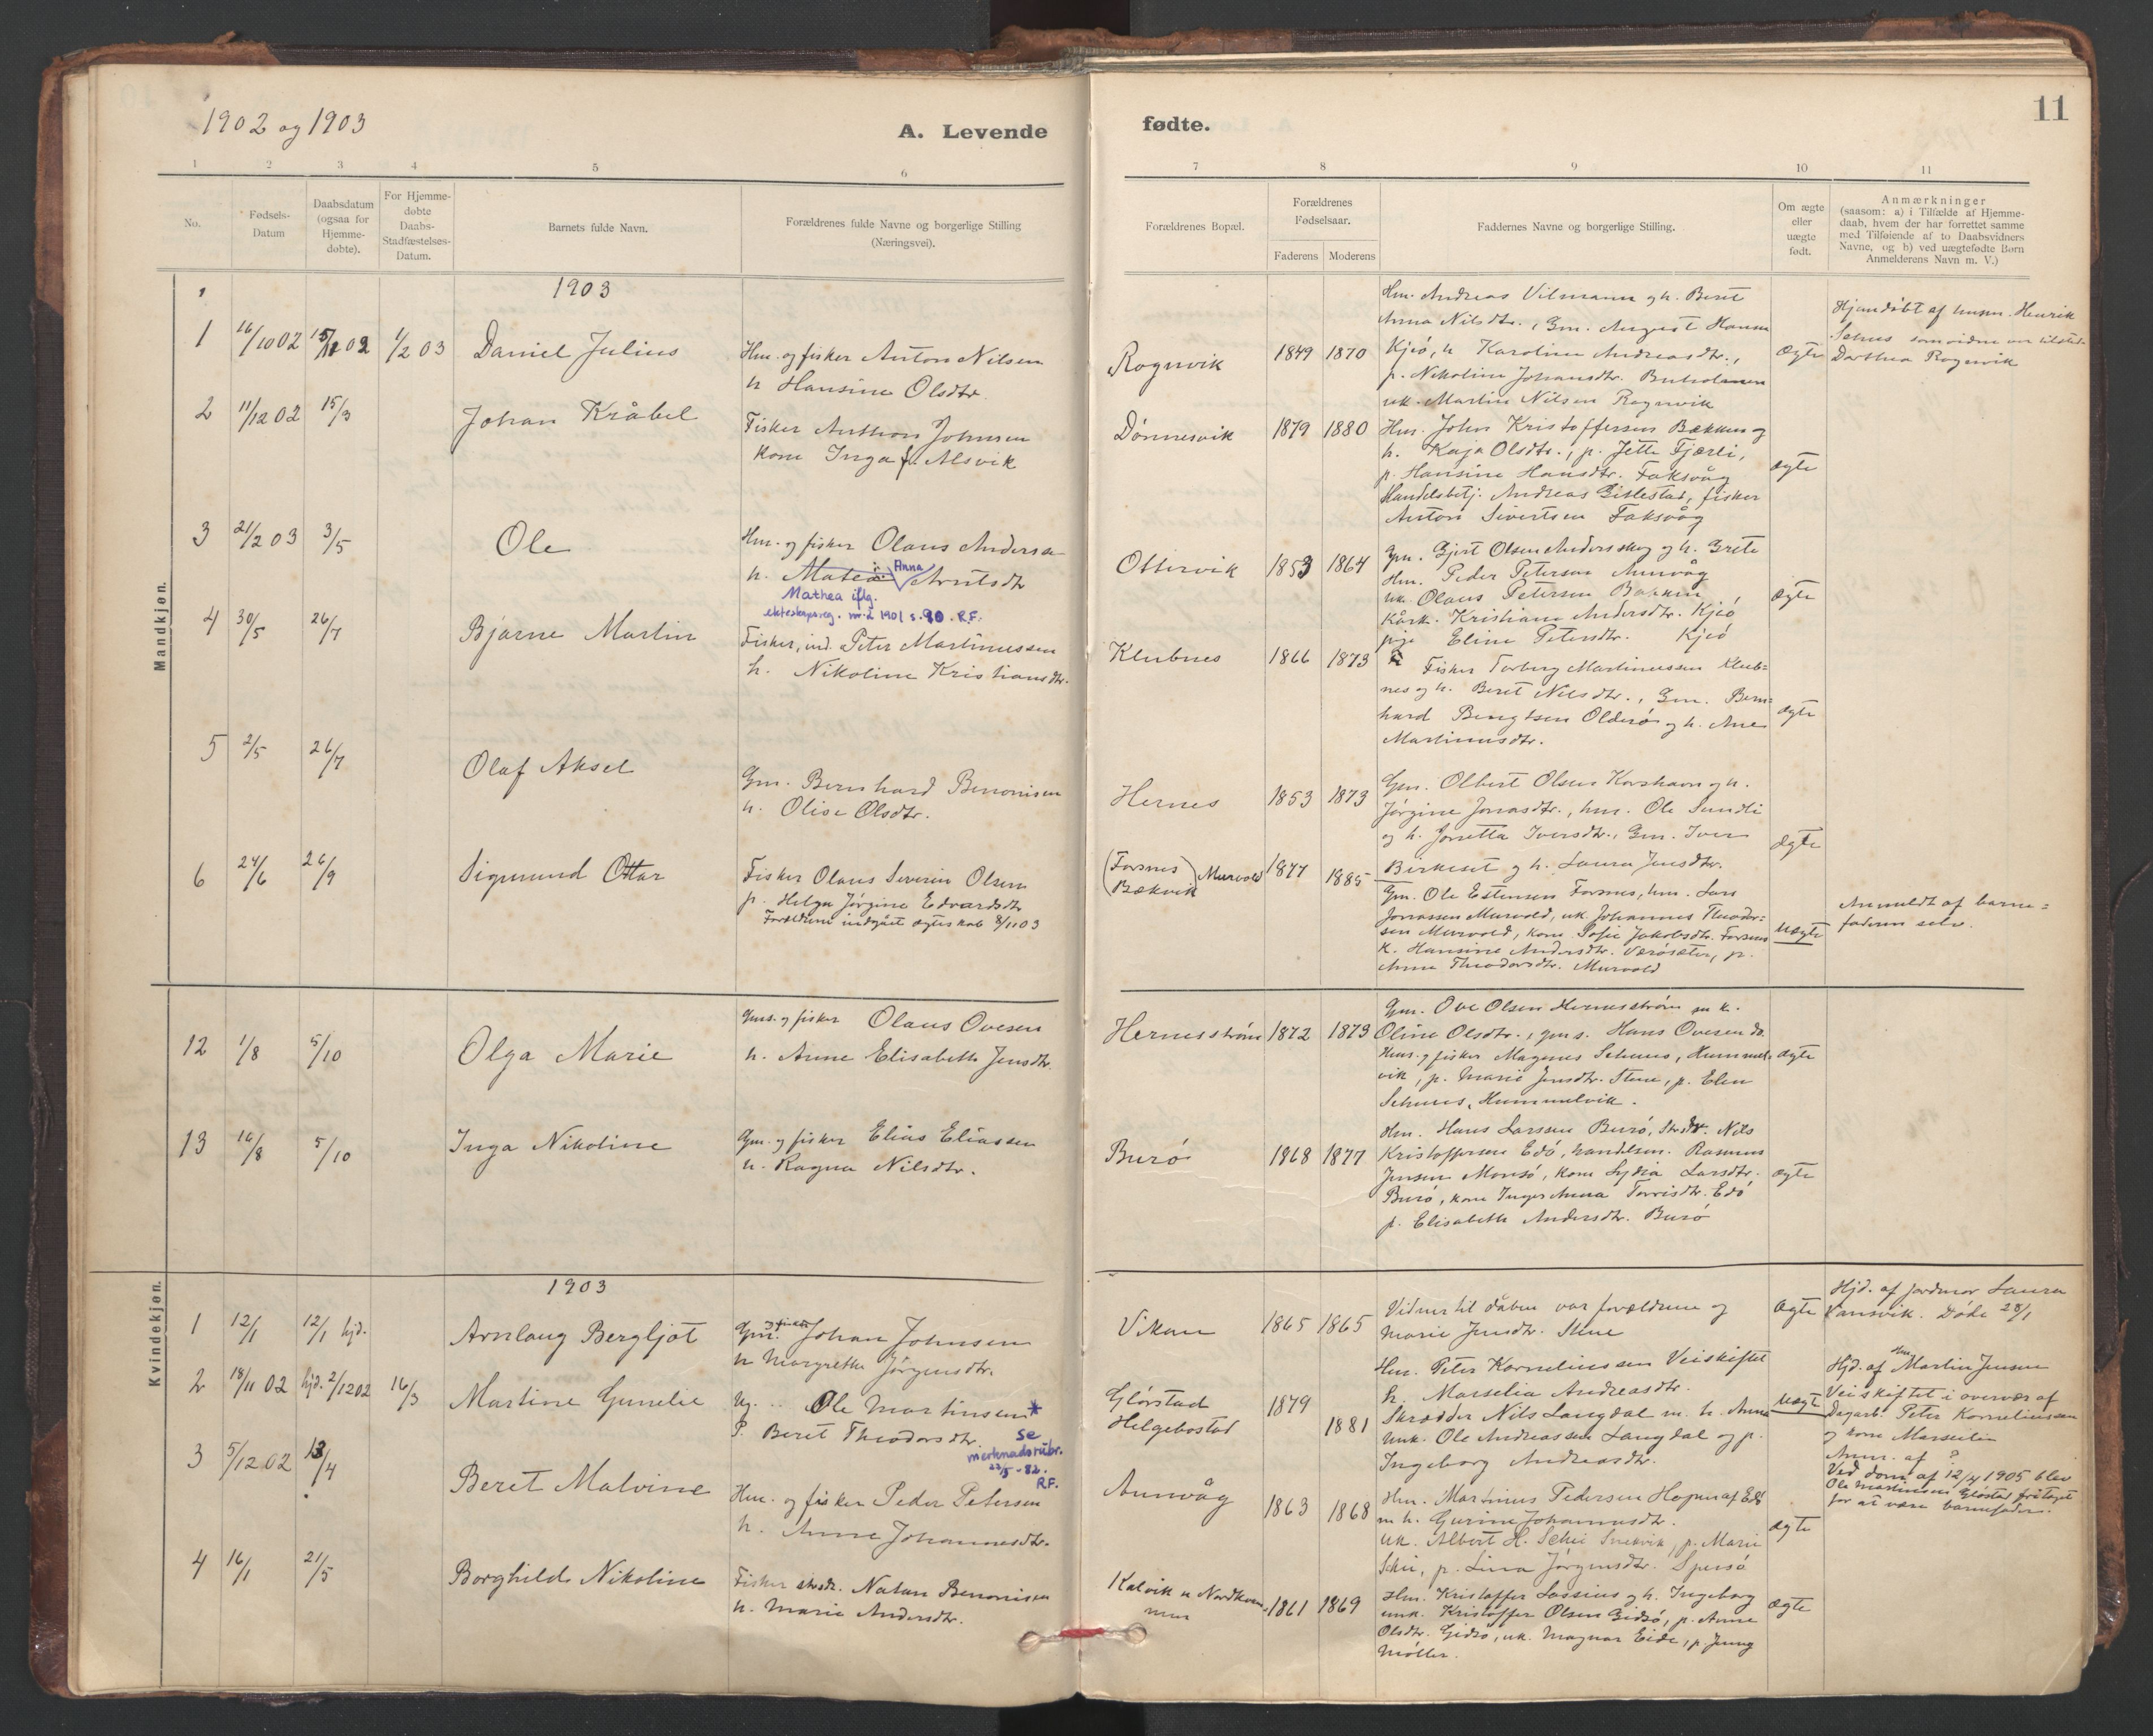 1902 og 1903
A. Levende
fødte.
11
1 2 3 4 5 6
7 8 9 10 11
No.
Fødsels-
Datum
Daabsdatum
(ogsaa for
Hjemme-
døbte).
For Hjemme-
døbte
Daabs-
Stadfæstelses-
Datum.
Barnets fulde Navn.
Forældrenes fulde Navne og borgerlige Stilling
(Næringsvei).
Forældrenes Bopæl.
Forældrenes
Fødselsaar.
Faderens Moderens
Faddernes Navne og borgerlige Stilling.
Om ægte
eller
uægte
født.
Anmærkninger
(saasom: a) i Tilfælde af Hjemme-
daab, hvem der har forrettet samme
med Tilføiende af to Daabsvidners
Navne, og b) ved uægtefødte Børn
Anmelderens Navn m. V.)
Mandkjøn.
1903
1 16/10 02 1/2 03 Daniel Julius
Hm. og fisker Anton Nilsen
h. Hansine Olsdtr.
Rognvik 1849 1870
Hm. Andreas Vilmann og h. Beret
Anna Nilsdtr., Gm. August Hansen
Kjeö, h Karoline Andreasdtr.,
p. Nikoline Johansdtr. Buholmen
uk. Martin Nilsen Rognvik
Ægte
Hjemdøbt af husm. Henrik
Dorthea Rognvik
2 11/12 02 15/3 Johan Kråbel
Fisker Anthon Johnsen
kone Inga f. Alsvik
Dönnesvik 1879 1880
Hm. John Kristoffersen Bækken og
h. Kaja Olsdtr., p. Jette Fjærli,
p. Hansine Hansdtr. Faksvåg
Handelsbetj. Andreas Gillestad, fisker
Anton Sivertsen Faksvåg
ægte
3 21/2 03 3/5 Ole
Hm. og fisker Olaus Andersen
h. Matea Anna Arntsdtr
Mathea iflg.
ekteskapsreg. nr. 2 1901 s. 90. R.F.
Ottervik 1853 1864
Gm. Gjert Olsen Andersskog og h. Grete
Hm. Peder Petersen Annvåg
uk. Olaus Petersen Bækken
Kårk. Kristiane Andersdtr. Kjeö
pige Eline Petersdtr. Kjeö
ægte
4 30/5 26/7 Bjarne Martin
Fisker, ind. Peter Martinussen
h. Nikoline Kristiansdtr.
Klubnes 1866 1873
Fisker Torberg Martinussen Klub-
nes og h. Beret Nilsdtr., Gm. Bern-
hard Bengtsen Olderö og h. Ane
Martinusdtr.
ægte
5 2/5 26/7 Olaf Aksel
Gm. Bernhard Benonisen
h. Olise Olsdtr.
Hernes 1853 1873
Gm. Olbert Olsen Korshavn og h.
Jørgine Jonasdtr., hm. Ole Sundli
og h. Jonetta Iversdtr., Gm. Iver
Birkeset og h. Laura Jensdtr.
ægte
6 24/6 26/9 Sigmund Ottar
Fisker Olaus Severin Olsen
p. Helga Jørgine Edvardsdtr
Forældrene indgået ægteskab 8/11 03
(Forsnes
Bækvik) Murvold 1877 1885
Gm. Ole Estensen Forsnes, hm. Lars
Jonassen Murvold, uk. Johannes Theodor-
sen Murvold, kone Sofie Jakobsdtr. Forsnes
k. Hansine Andersdtr. Værösæter, p.
Anne Theodorsdtr. Murvold
uægte
Anmeldt af barne-
faderen selv.
12 1/8 5/10 Olga Marie
Gms. og fisker Olaus Ovesen
h. Anne Elisabeth Jensdtr.
Hernesström 1872 1873
Gm. Ove Olsen Hernesström m. k.
Oline Olsdtr., gms. Hans Ovesen do.
Hms. og fisker Magnus Schues, Hummel-
vik, p. Marie Jensdtr. Stene, p. Elen
Schues, Hummelvik.
ægte
13 16/8 5/10 Inga Nikoline
Gm. og fisker Elias Eliassen
h. Ragna Nilsdtr.
Burö 1868 1877
Hm. Hans Larssen Burö, Nils
Kristoffersen Edö, handelsm. Rasmus
Jensen Monsö, kone Lydia Larsdtr.
Burö, kone Inger Anna Torrisdtr. Edö
p. Elisabeth Andersdtr. Burö
ægte
Kvindekjøn.
1903
1 12/1 12/1 hjd. Arnlaug Bergljot
Gm. og fisker Johan Johnsen
h. Margrethe Jörgensdtr.
Vikan 1865 1865
Vidner til dåben var forældrene og
Marie Jensdtr. Stene
Ægte
Hjd. af jordmor Laura
Vansvik. Döde 28/1
2 18/11 02 hjd. 2/12 02 16/3 Martine Gunelie
Ug. Ole Martinsen*
P. Beret Theodorsdtr.
se
merknadsrubr.
22/5-82.
R.F.
Glörstad
Helgebostad
1879 1881
Hm. Peter Korneliussen Veiskiftet
h. Marselia Andreasdtr.
Skrædder Nils Langdal m. h. Anna
Unk. Ole Andreassen Langdal og p.
Ingeborg Andreasdtr.
uægt
Hjd. af Hm. Martin Jensen
Veiskiftet i overvær af
Dagarb. Peter Korneliussen
og kone Marselia
Anm. af ?
Ved dom af 12/4 1905 blev
Ole Martinsen Glöstad fritaget
for at være barnefader.
3 5/12 02 13/4 Beret Malvine
Hm. og fisker Peder Petersen
h. Anne Johannesdtr.
Annvåg 1863 1868
Hm. Martinus Pedersen Hopen af Edö
m. h. Gurine Johannesdtr.
uk. Albert H. Schei Snekvik, p. Marie
Schei, p. Lina Jørgensdtr. Spersö
ægte
4 16/1 21/5 Borghild Nikoline
Fisker Natan Benonisen
h. Marie Andersdtr.
Kalvik 1861 1869
Hm. Kristoffer Lossius og h. Ingeborg
unk. Kristoffer Olsen Gidsö, p. Anne
Olsdtr. Gidsö, uk. Magnar Eide, p. Jenny
Möller.
ægte